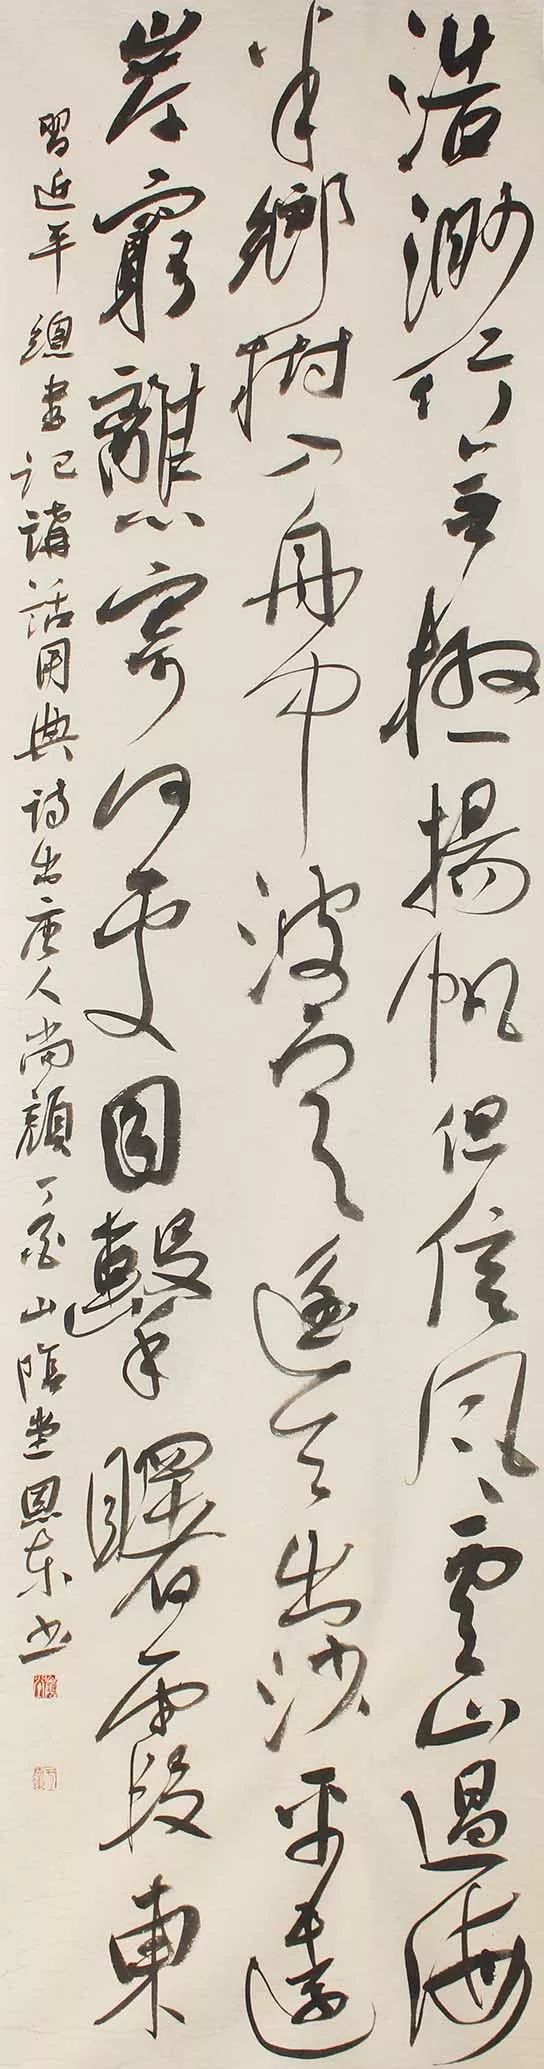 浩渺行無極揚帆但信風雲山過海
半鄉樹入舟中波定遙天出沙平遠
岸窮離心寄何處目擊曙霞東
習近平總書記講話用典詩出唐人尚顏丁酉山陰堂恩東书